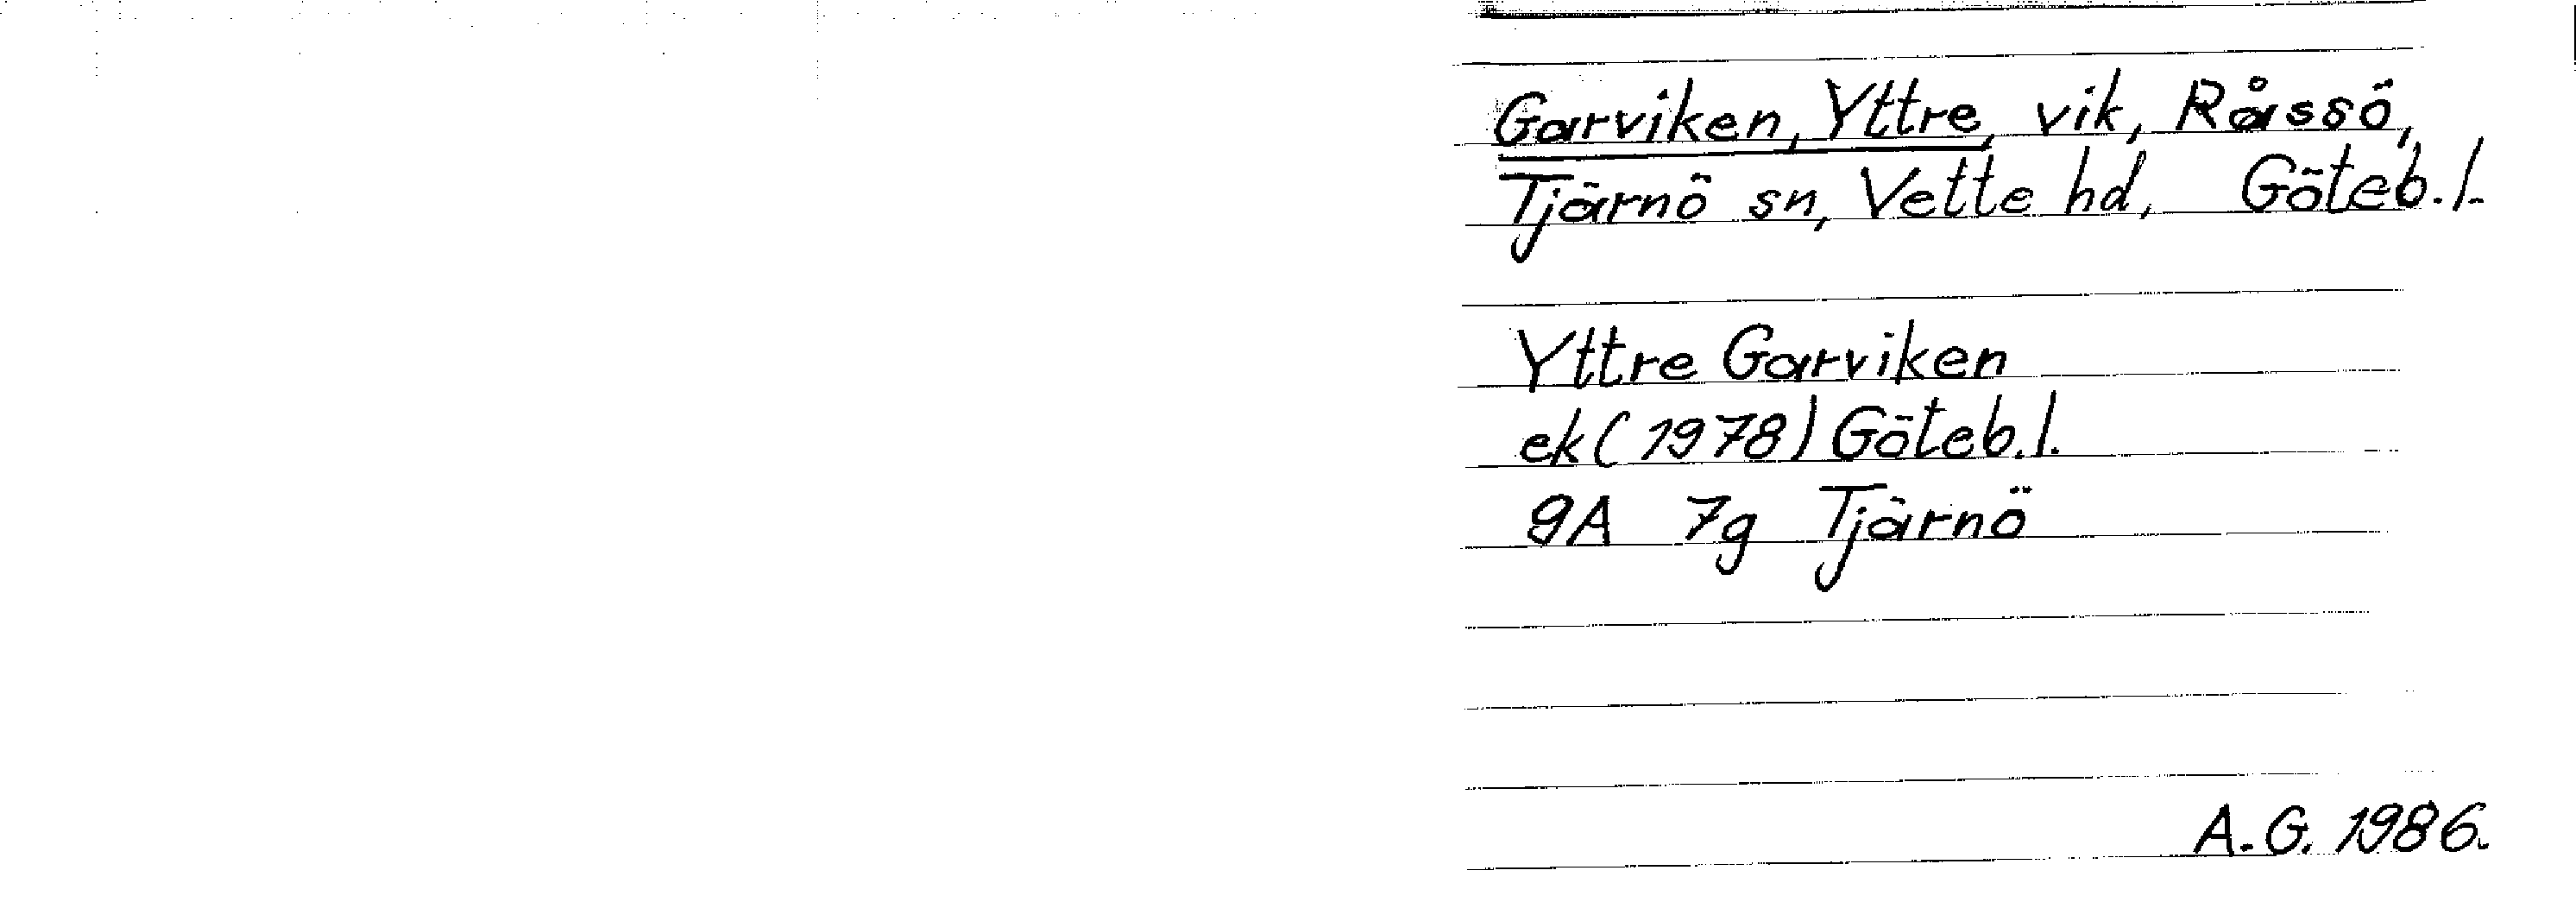 Garviken, Yttre, vik, Råssö,
Tjärnö sn, Vette hd, Göteb.l.
Yttre Garviken
ek (1978) Göteb.l.
9A 7g Tjärnö
A.G. 1986.